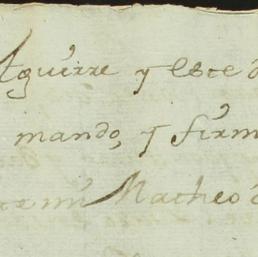 Aguirre y este
mando, y firm
mi Matheo